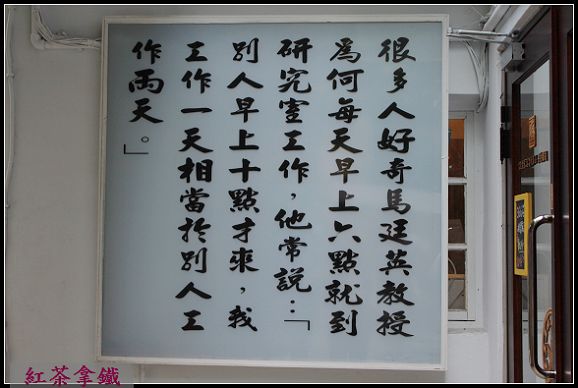 很多人好奇馬廷英教授
為何每天早上六點就到
研究室工作，他常說：「
別人早上十點才來，我
工作一天相當於別人工
作兩天。」
紅茶拿鐵